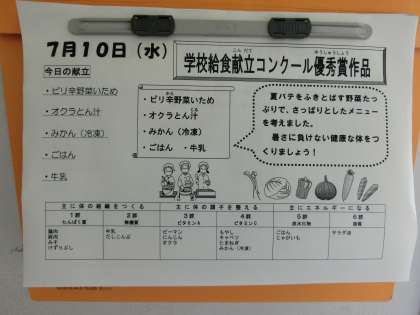 7月10日（水）
こん だて
ゆうしゅうしょう
学校給食献立コンクール優秀賞作品
今日の献立
・ピリ辛野菜いため
・オクラとん汁
・みかん（冷凍）
・ごはん
・牛乳
・ピリ辛野菜いため
・オクラとん汁
・みかん（冷凍）
・ごはん ・牛乳
夏バテをふきとばす野菜たっ
ぷりで、さっぱりとしたメニュー
を考えました。
暑さに負けない健康な体をつ
くりましょう！
主に体の組織をつくる 主に体の調子を整える 主にエネルギーになる
1群 2群 3群 4群 5群 6群
たんぱく質 無機質 ビタミンA ビタミンC 炭水化物 脂質
豚肉 牛乳 ピーマン もやし ごはん サラダ油
鶏肉 だしこんぶ にんじん キャベツ じゃがいも
みそ オクラ たまねぎ
けずりぶし みかん（冷凍）